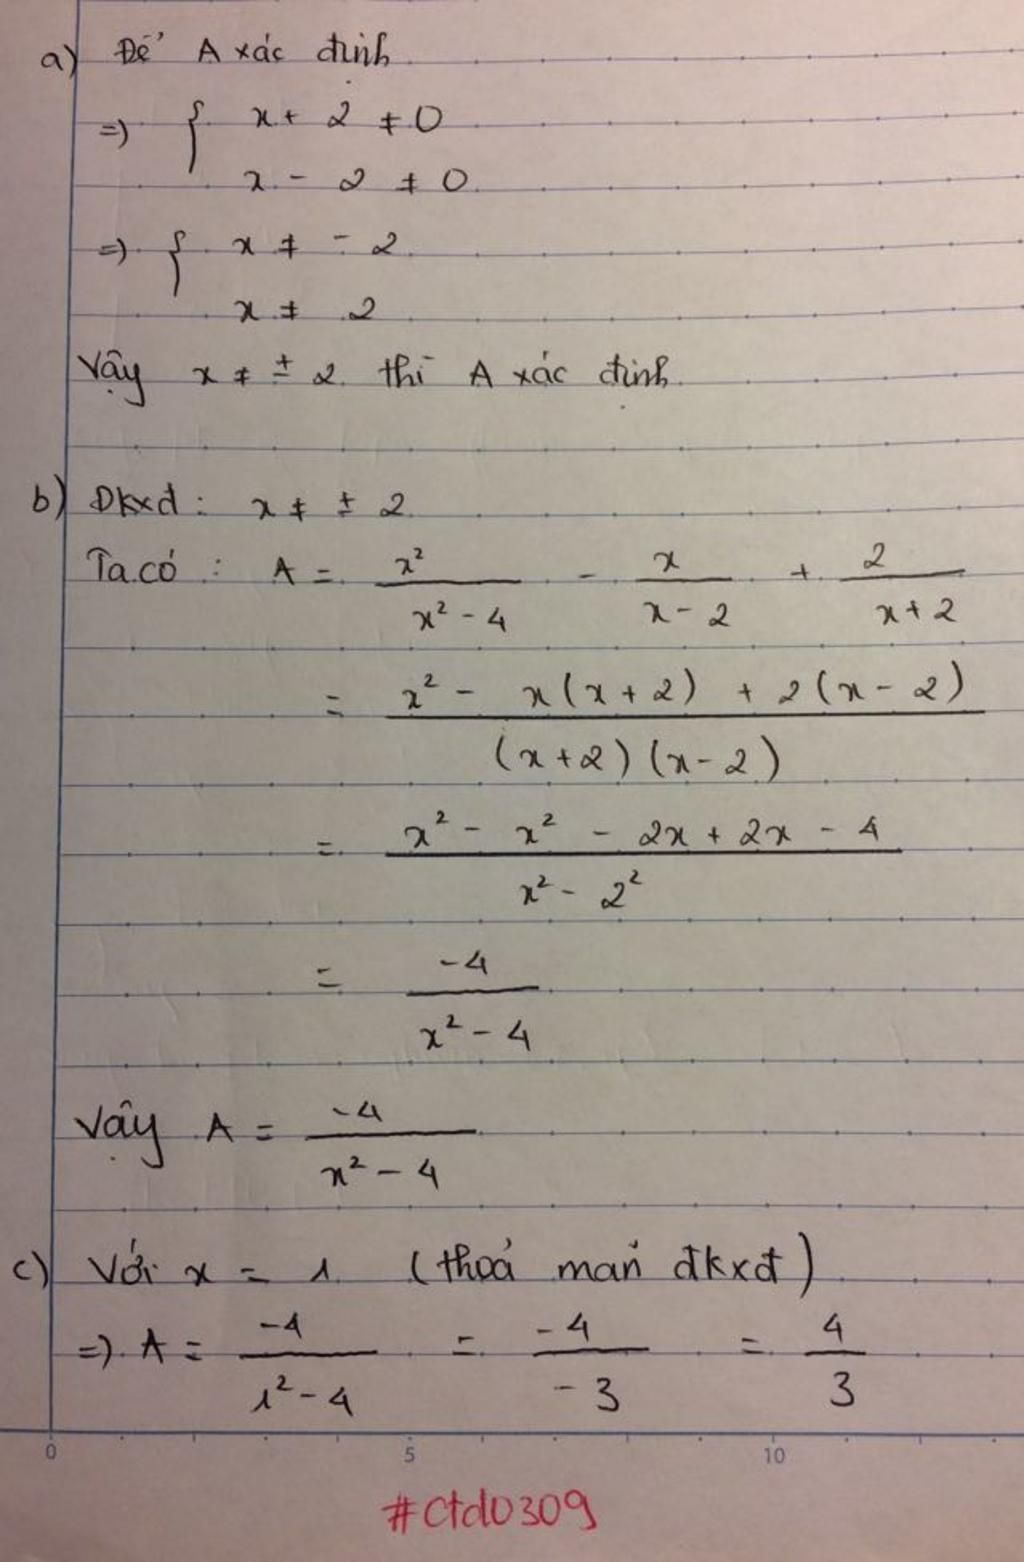 a) Để A xác định
=> { x + 2 ≠ 0
x - 2 ≠ 0
=> { x ≠ - 2
x ≠ 2
Vậy x ≠ ± 2 thì A xác định
b) Đkxđ: x ≠ ± 2
Ta có : A = x²/(x² - 4) - x/(x - 2) + 2/(x + 2)
= (x² - x(x + 2) + 2(x - 2))/((x + 2)(x - 2))
= (x² - x² - 2x + 2x - 4)/(x² - 2²)
= -4/(x² - 4)
Vậy A = -4/(x² - 4)
c) Với x = 1 (thoả mãn đkxđ)
=> A = -4/(1² - 4) = -4/-3 = 4/3
0 5 10
#Ctd0309